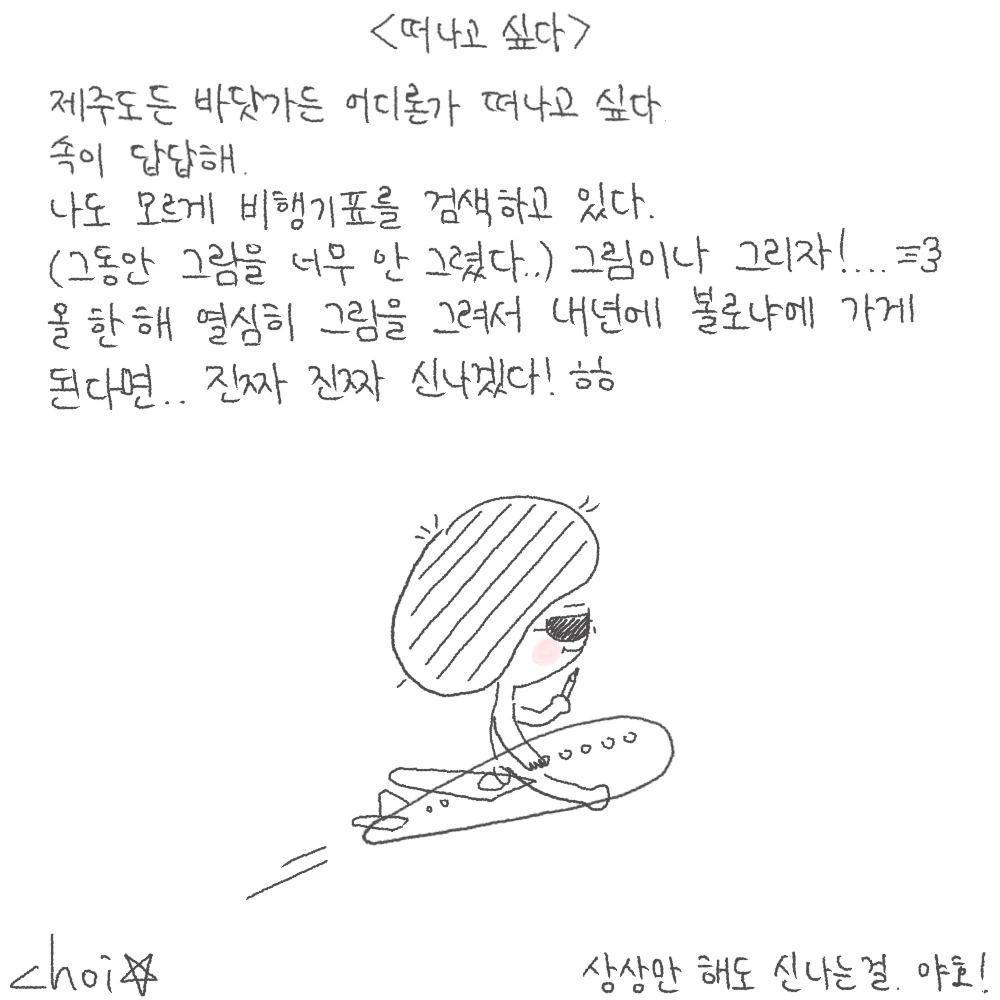 <떠나고 싶다>
제주도든 바닷가든 어디론가 떠나고 싶다
속이 답답해.
나도 모르게 비행기표를 검색하고 있다.
(그동안 그림을 너무 안 그렸다..) 그림이나 그리자!.... =3
올 한해 열심히 그림을 그려서 내년에 볼로냐에 가게
된다면.. 진짜 진짜 신나겠다! ㅎㅎ
choi☆
상상만 해도 신나는걸. 야호!